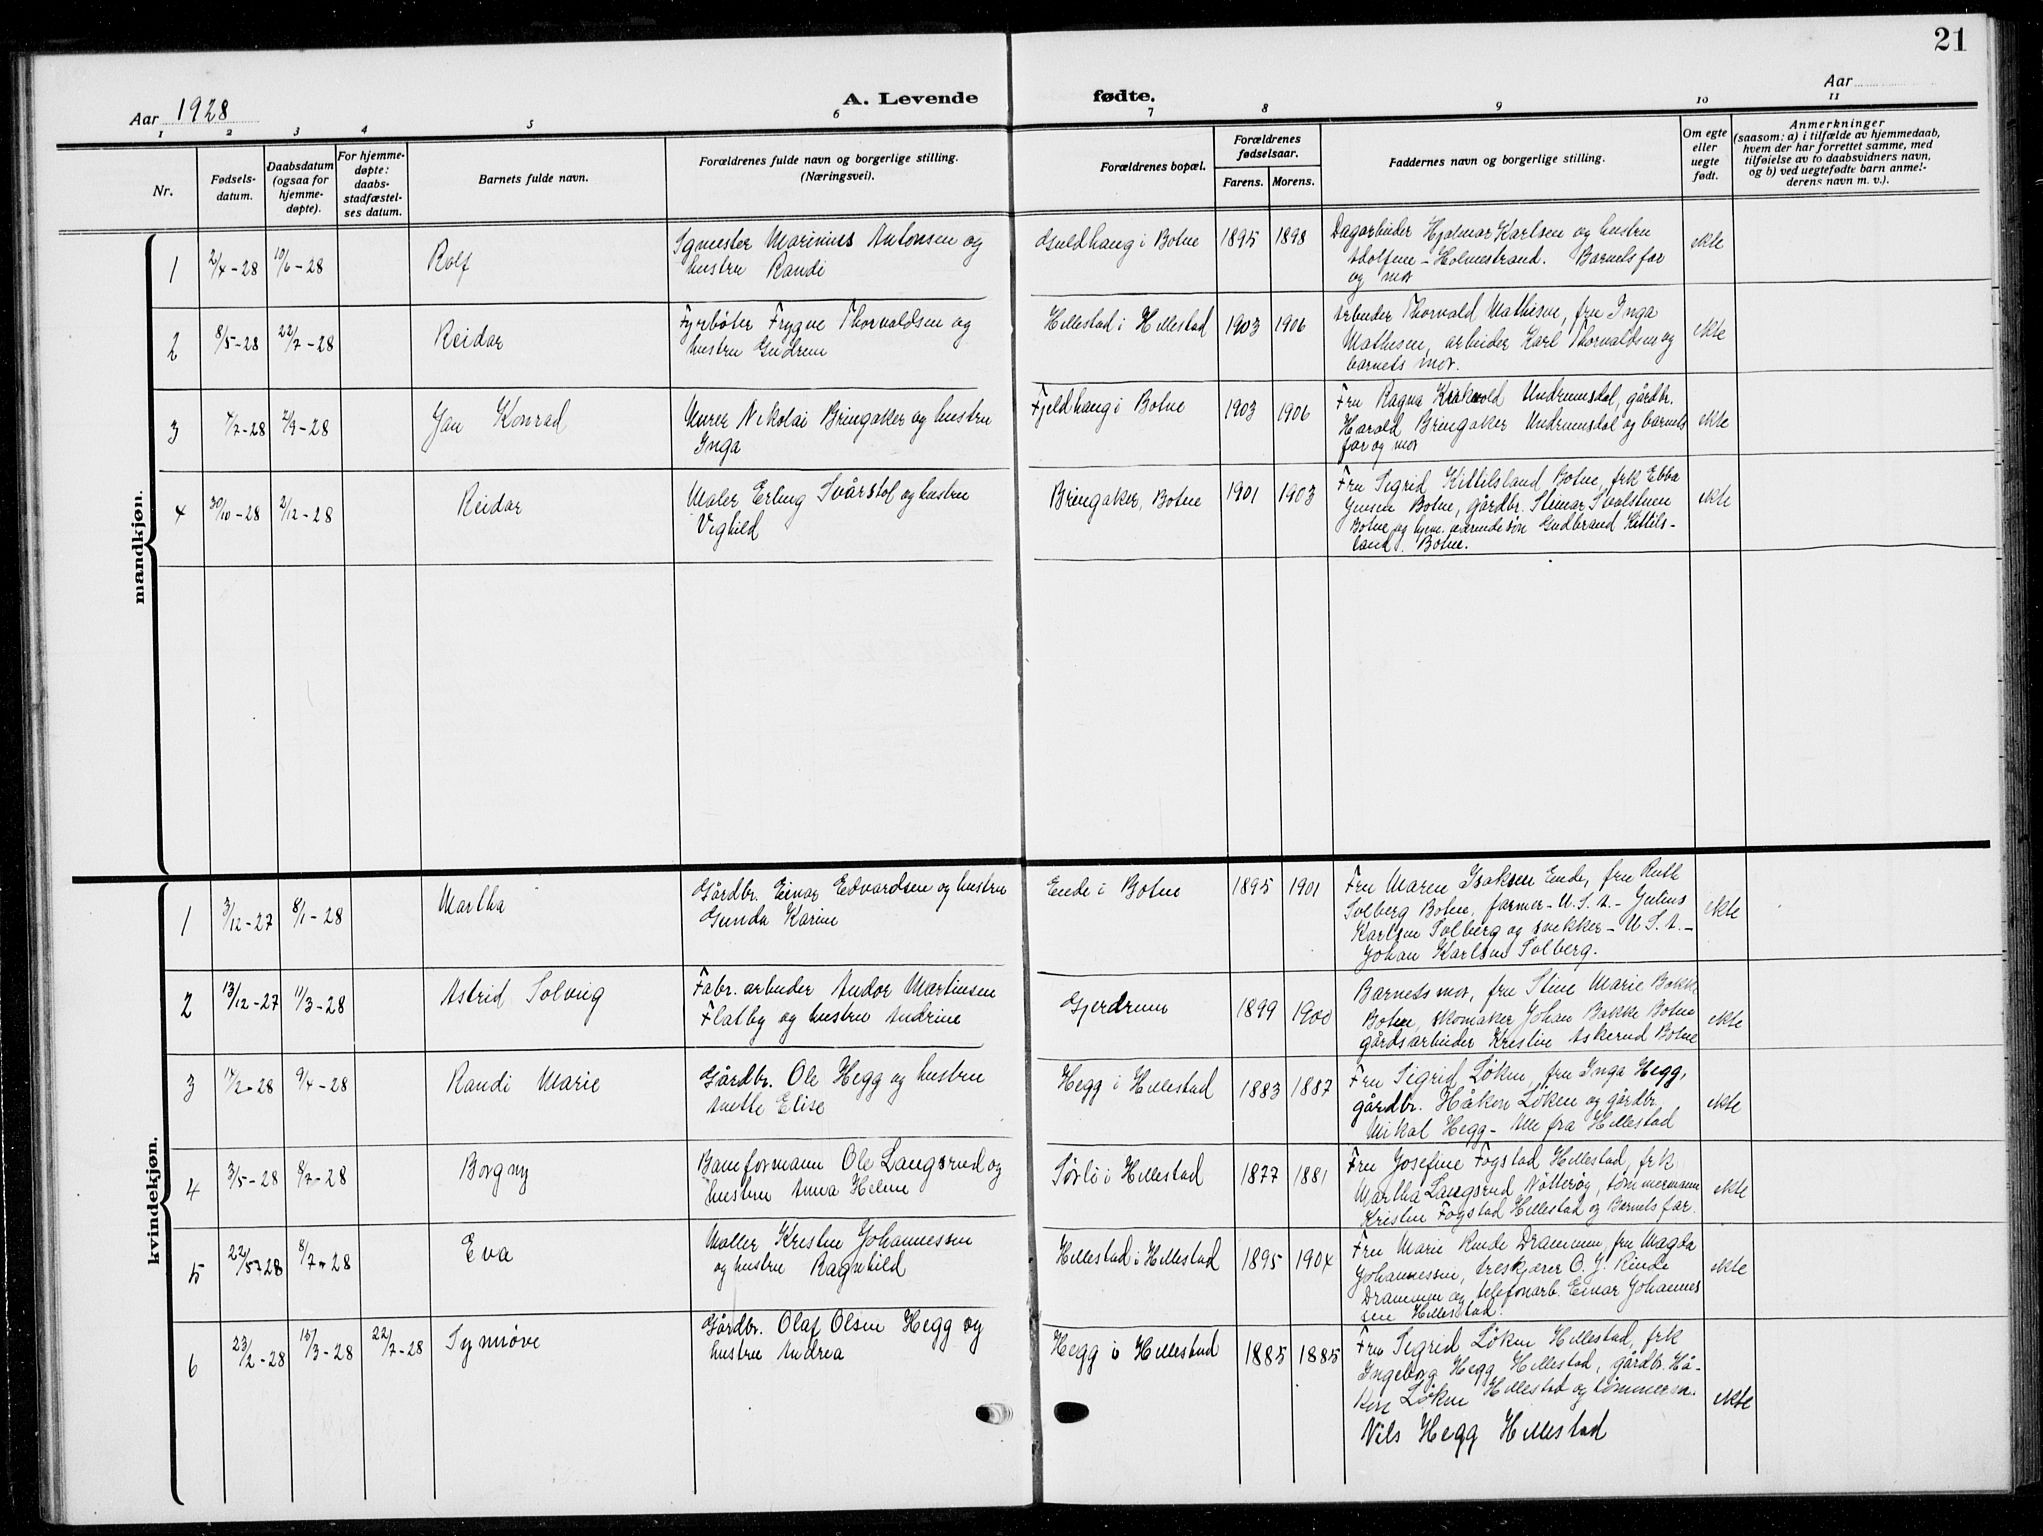 21
Aar 1928
A. Levende fødte.
Aar
1 2 3 4 5 6 7 8 9 10 11
Nr.
Fødsels-
datum.
Daabsdatum
(ogsaa for
hjemme-
døpte).
For hjemme-
døpte:
daabs-
stadfæstel-
ses datum.
Barnets fulde navn.
Forældrenes fulde navn og borgerlige stilling.
(Næringsvei).
Forældrenes bopæl.
Forældrenes
fødselsaar.
Farens. Morens.
Faddernes navn og borgerlige stilling.
Om egte
eller
uegte
født.
Anmerkninger
(saasom: a) i tilfælde av hjemmedaab,
hvem der har forrettet samme, med
tilføielse av to daabsvidners navn,
og b) ved uegtefødte barn anmel-
derens navn m. v.).
mandkjøn.
1 2/4-28 10/6-28 Rolf
Marinius Antonsen og
hustru Randi
Guldhaug i Botne 1895 1898
Dagarbeider Hjalmar Karlsen og hustru
Adolfine - Holmestrand. Barnets far
og mor
ekte
2 8/5-28 22/7-28 Reidar
Fyrbøter Trygve Thorvaldsen og
hustru Gudrun
Hillestad i Hillestad 1903 1906
Arbeider Thorvald Mathisen, fru Inga
Mathisen, arbeider Karl Thorvaldsen og
barnets mor.
ekte
3 /7-28 2/9-28 Jan Konrad
Murer Nikolai Bringaker og hustru
Inga
Fjeldhaug i Botne 1903 1906
Fru Ragna Undrumsdal, gårdbr.
Harald Bringaker Undrumsdal og barnets
far og mor
ekte
4 30/10-28 2/12-28 Reidar
Maler Erling Svårstol og hustru
Vighild
Bringaker, Botne 1901 1903
Fru Sigrid Kittilsland Botne, frk Ebba
Jensen Botne, gårdbr. Steinar
Botne og hjem. værende søn Gudbrand Kittils-
land. Botne.
ekte
kvindekjøn.
1 3/12-27 8/1-28 Martha
Gårdbr. Einar Edvardsen og hustru
Gunda Karine
Ende i Botne 1895 1901
Fru Maren Isaksen Ende, fru Ruth
Solberg Botne, farmer - U.S.A. - Julius
Karlsen Solberg og snekker - U.S.A. -
Johan Karlsen Solberg.
ekte
2 13/12-27 11/3-28 Astrid Solveig
Fabr. arbeider Andor Martinsen
Flatby og hustru Andrine
Gjerdrum 1899 1900
Barnets mor, fru Stine Marie Bakke
Botne, skomaker Johan Bakke Botne
gårdsarbeider Kristine Askerud Botne
ekte
3 /2-28 9/4-28 Randi Marie
Gårdbr. Ole Hegg og hustru
Anette Elise
Hegg i Hillestad 1883 1887
Fru Sigrid Løken, fru Inga Hegg,
gårdbr. Håkon Løken og gårdbr.
Mikal Hegg - Alle fra Hillestad
ekte
4 3/5-28 8/7-28 Borgny
Baneformann Ole Langsrud og
hustru Anna Helene
Sørli i Hillestad 1877 1881
Fru Josefine Fogstad Hillestad, frk
Martha Langsrud Nøtterøy, tømmermann
Kristen Fogstad Hillestad og Barnets far.
ekte
5 22/5-28 8/7-28 Eva
Møller Kristen Johannessen
og hustru Ragnhild
Hillestad i Hillestad 1895 1904
Fru Marie Rinde Drammen, fru Magda
Johannessen, treskjærer O. J. Rinde
Drammen og telefonarb. Einar Johannes
sen Hillestad.
ekte
6 23/2-28 15/3-28 22/7-28 Synnøve
Gårdbr. Olaf Olsen Hegg og
hustru Andrea
Hegg i Hillestad 1885 1885
Fru Sigrid Løken Hillestad, frk
Ingeborg Hegg Hillestad, gårdbr. Hå-
kon Løken Hillestad og tømmerm.
Nils Hegg Hillestad
ekte